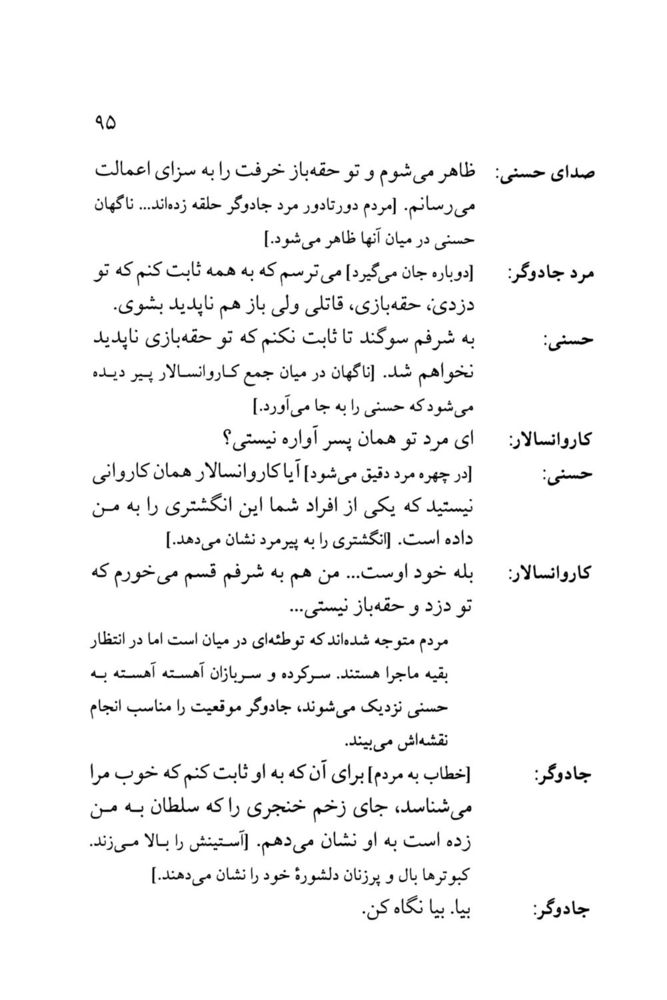 ۹۵
صدای حسنی: ظاهر می‌شوم و تو حقه‌باز خرفت را به سزای اعمالت
می‌رسانم. [مردم دورتادور مرد جادوگر حلقه زده‌اند... ناگهان
حسنی در میان آنها ظاهر می‌شود.]
مرد جادوگر: [دوباره جان می‌گیرد] می‌ترسم که به همه ثابت کنم که تو
دزدی، حقه‌بازی، قاتلی ولی باز هم ناپدید بشوی.
حسنی: به شرفم سوگند تا ثابت نکنم که تو حقه‌بازی ناپدید
نخواهم شد. [ناگهان در میان جمع کاروانسالار پیر دیده
می‌شود که حسنی را به جا می‌آورد.]
کاروانسالار: ای مردِ تو همان پسر آواره نیستی؟
حسنی: [در چهره مرد دقیق می‌شود] آیا کاروانسالار همان کاروانی
نیستید که یکی از افراد شما این انگشتری را به من
داده است. [انگشتری را به پیرمرد نشان می‌دهد.]
کاروانسالار: بله خود اوست... من هم به شرفم قسم می‌خورم که
تو دزد و حقه‌باز نیستی...
مردم متوجه شده‌اند که توطئه‌ای در میان است اما در انتظار
بقیه ماجرا هستند. سرکرده و سربازان آهسته آهسته به
حسنی نزدیک می‌شوند، جادوگر موقعیت را مناسب انجام
نقشه‌اش می‌بیند.
جادوگر: [خطاب به مردم] برای آن که به او ثابت کنم که خوب مرا
می‌شناسد، جای زخم خنجری را که سلطان به من
زده است به او نشان می‌دهم. [آستینش را بالا می‌زند.
کبوترها بال و پرزنان دلشورهٔ خود را نشان می‌دهند.]
جادوگر: بیا. بیا نگاه کن.